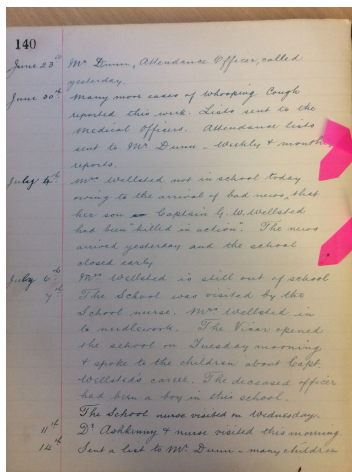 140
June 23rd Mr Dunn, Attendance Officer, called
yesterday.
June 30th Many more cases of Whooping Cough
reported this week. Lists sent to the
Medical Officers. Attendance lists
sent to Mr Dunn - Weekly & monthly
reports.
July 4th Mrs Wellsted not in school today
owing to the arrival of bad news, that
her son Captain G. W. Wellsted
had been "killed in action". The news
arrived yesterday and the school
closed early.
July 6th Mrs Wellsted is still out of school
7th The School was visited by the
School nurse. Mrs Wellsted in
to needlework. The Vicar opened
the school on Tuesday morning
& spoke to the children about Capt.
Wellsted's career. The deceased officer
had been a boy in this school.
The School nurse visited on Wednesday.
11th Dr Ashkenny & nurse visited this morning.
14th Sent a list to Mr Dunn - many children